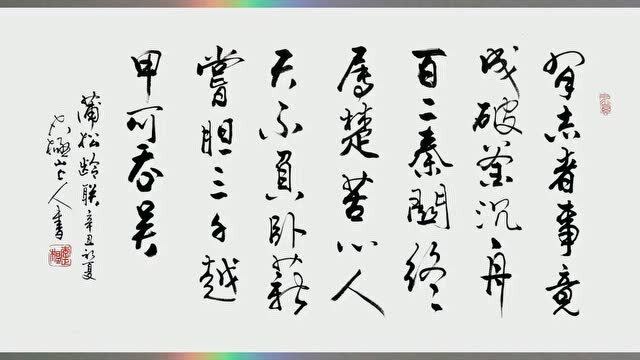 有志者事竟
成破釜沉舟
百二秦關終
屬楚苦心人
天不負卧薪
嘗膽三千越
甲可吞吴
蒲松龄联辛丑初夏
山上人書